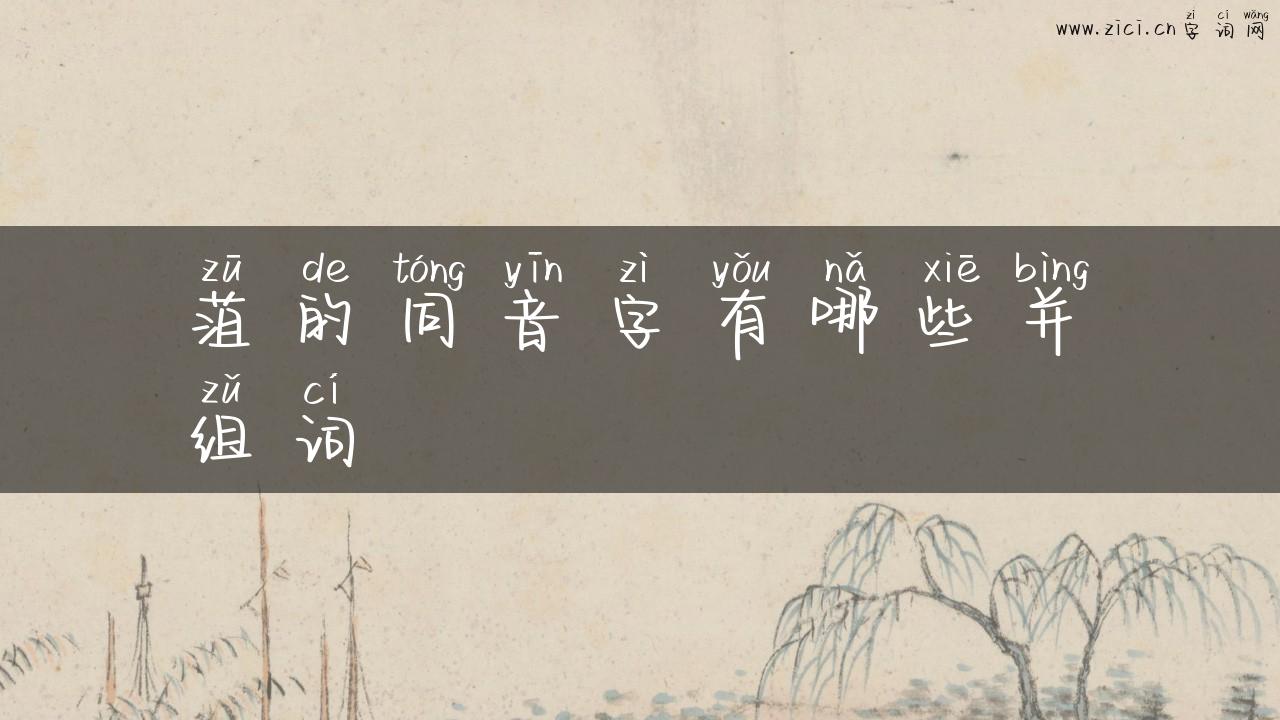 zì cí wǎng
www.zici.cn 字词网
zū de tóng yīn zì yǒu nǎ xiē bìng
蒩的同音字有哪些并
zǔ cí
组词